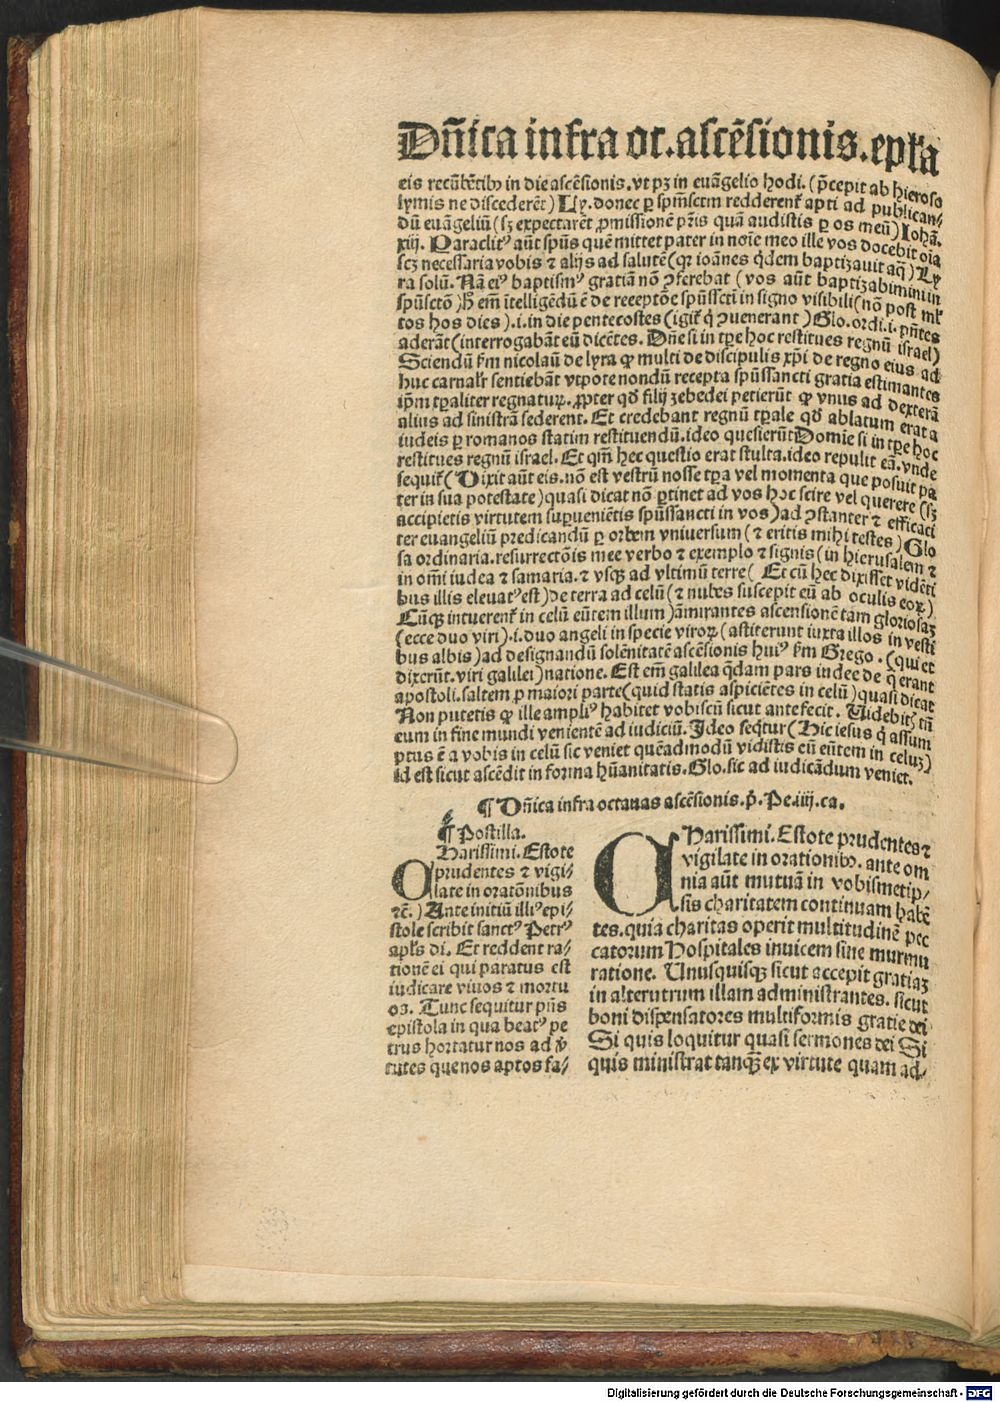 Dñica infra oc.ascẽsionis.epl'a
eis recũbẽtibꝰ in die ascẽsionis.vt pꝫ in euãgelio hodi.(p̃cepit ab hieroso
lymis ne discederẽt) Ly.donec ꝑ spm̃sctm redderent᷑ apti ad publican/
dũ euãgeliũ (sꝫ expectarẽt ꝓmissionẽ pr̃is quã audistis ꝑ os meũ) Johã.
xiij. Paraclitꝰ aũt spũs quẽ mittet pater in noĩe meo ille vos docebit oĩa
scꝫ necessaria vobis ⁊ alijs ad salutẽ (qꝛ ioãnes q̇dem baptizauit aq̃) Ly
ra solũ. Nã eiꝰ baptismꝰ gratiã nõ ꝯferebat (vos aũt baptizabimini in
spũsctõ) h̃ em̃ ĩtelligẽdũ ẽ de receptõe spũsscti in signo visibili (nõ post ml'
tos hos dies).i.in die pentecostes (igit᷑ q̇ ꝯuenerant) Glo.ordi.i.pñtes
aderãt (interrogabãt eũ dicẽtes. Dñe si in tꝑe hoc restitues regnũ israel)
Sciendũ s'm nicolaũ de lyra ꝙ multi de discipulis xp̃i de regno eius ad
huc carnalr̃ sentiebãt vtpote nondũ recepta spũssancti gratia estimantes
ip̃m tꝑaliter regnaturꝫ. ꝓpter qď filij zebedei petierũt ꝙ vnus ad dexterã
alius ad sinistrã sederent. Et credebant regnũ tꝑale qď ablatum erat a
iudeis ꝑ romanos statim restituendũ.ideo quesierũt Domĩe si in tꝑe hoc
restitues regnũ israel. Et qm̃ hec questio erat stulta.ideo repulit eã.vnde
sequit᷑ (Dixit aũt eis.nõ est vestrũ nosse tꝑa vel momenta que posuit pa
ter in sua potestate) quasi dicat nõ ꝑtinet ad vos hoc scire vel querere (sꝫ
accipietis virtutem suꝑueniẽtis spũssancti in vos) ad ꝯstanter ⁊ efficaci
ter euangeliũ predicandũ ꝑ orbem vniuersum (⁊ eritis mihi testes) Glo
sa ordinaria.resurrectõis mee verbo ⁊ exemplo ⁊ signis (in hierusalem ⁊
in om̃i iudea ⁊ samaria.⁊ vsqꝫ ad vltimũ terre ( Et cũ hec dixisset vidẽti
bus illis eleuatꝰ est) de terra ad celũ (⁊ nubes suscepit eũ ab oculis eoꝝ)
Cũqꝫ intuerent᷑ in celũ eũtem illum) ãmirantes ascensionẽ tam gloriosaꝫ
(ecce duo viri).i.duo angeli in specie viroꝝ (astiterunt iuxta illos in vesti
bus albis) ad designandũ solẽnitatẽ ascẽsionis huiꝰ s'm Grego. (qui et
dixerũt.viri galilei) natione. Est em̃ galilea q̃dam pars indee de q̃ erant
apostoli.saltem ꝓ maiori parte (quid statis aspiciẽtes in celũ) quasi dicat
Non putetis ꝙ ille ampliꝰ habitet vobiscũ sicut ante fecit. Uidebit᷑ tñ
eum in fine mundi venientẽ ad iudiciũ. Ideo seq̃tur (Hic iesus q̇ assum
ptus ẽ a vobis in celũ sic veniet quẽadmodũ vidistis eũ eũtem in celuꝫ)
id est sicut ascẽdit in forma hũanitatis. Glo.sic ad iudicãdum veniet.
¶ Dñica infra octauas ascẽsionis.ṗ. Pe.iiij.ca.
¶ Postilla.
CHarissimi. Estote
prudentes ⁊ vigi/
late in oratõnibus
⁊c̃.) Ante initiũ illiꝰ epi/
stole scribit sanctꝰ Petrꝰ
apl's di. Et reddent ra/
tionẽ ei qui paratus est
iudicare viuos ⁊ mortu
os. Tunc sequitur pñs
epistola in qua beatꝰ pe
trus hortatur nos ad v̇/
tutes que nos aptos fa/
CHarissimi. Estote prudentes ⁊
vigilate in orationibꝰ. ante om
nia aũt mutuã in vobismetip/
sis charitatem continuam habẽ
tes. quia charitas operit multitudinẽ pec
catorum Hospitales inuicem sine murmu
ratione. Unusquisqꝫ sicut accepit gratiaꝫ
in alterutrum illam administrantes. sicut
boni dispensatores multiformis gratie dei
Si quis loquitur quasi sermones dei Si
quis ministrat tanqꝫ̃ ex virtute quam ad/
Digitalisierung gefördert durch die Deutsche Forschungsgemeinschaft - DFG